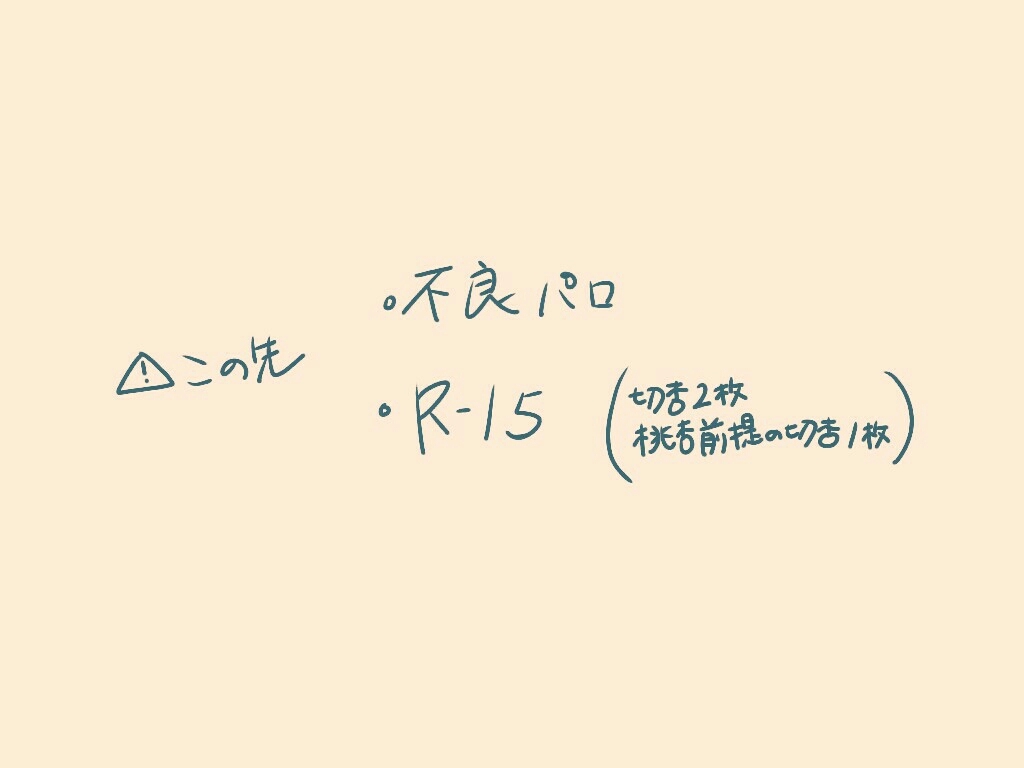 ・不良パロ
⚠この先
・R-15
(切杏2枚
桃杏前提の切杏1枚)